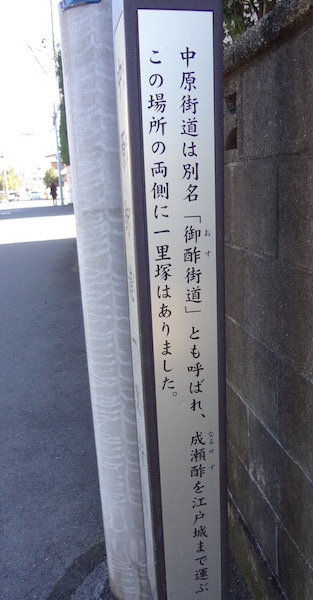 中原街道は別名「御酢街道」とも呼ばれ、成瀬酢を江戸城まで運ぶ
おす
なるせず
この場所の両側に一里塚はありました。